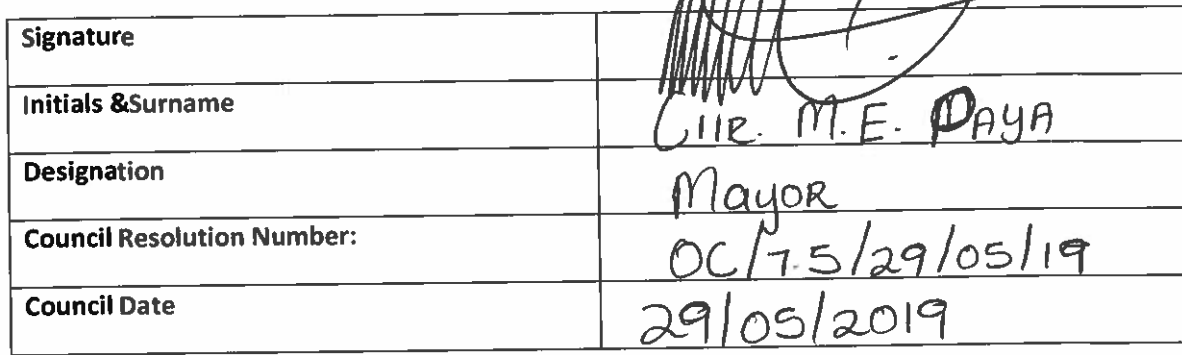 Signature
Initials &Surname Cllr. M.E. PAYA
Designation Mayor
Council Resolution Number: OC/7.5/29/05/19
Council Date 29/05/2019